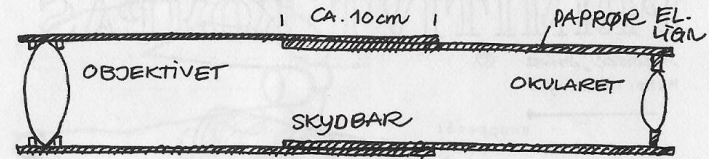 CA. 10cm
PAPRØR EL.
LIGN
OBJEKTIVET
OKULARET
SKYDBAR